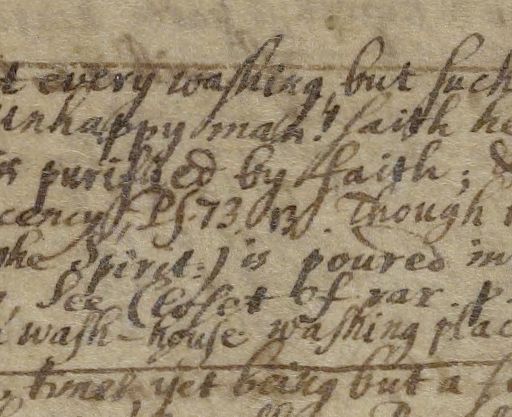 t every washing but such
Unhappy man! saith he
is purified by faith; &
cency, Ps. 73. 13. Though
the Spirit) is poured in
See Closet of rar. p.
wash-house washing plac
times yet being but a